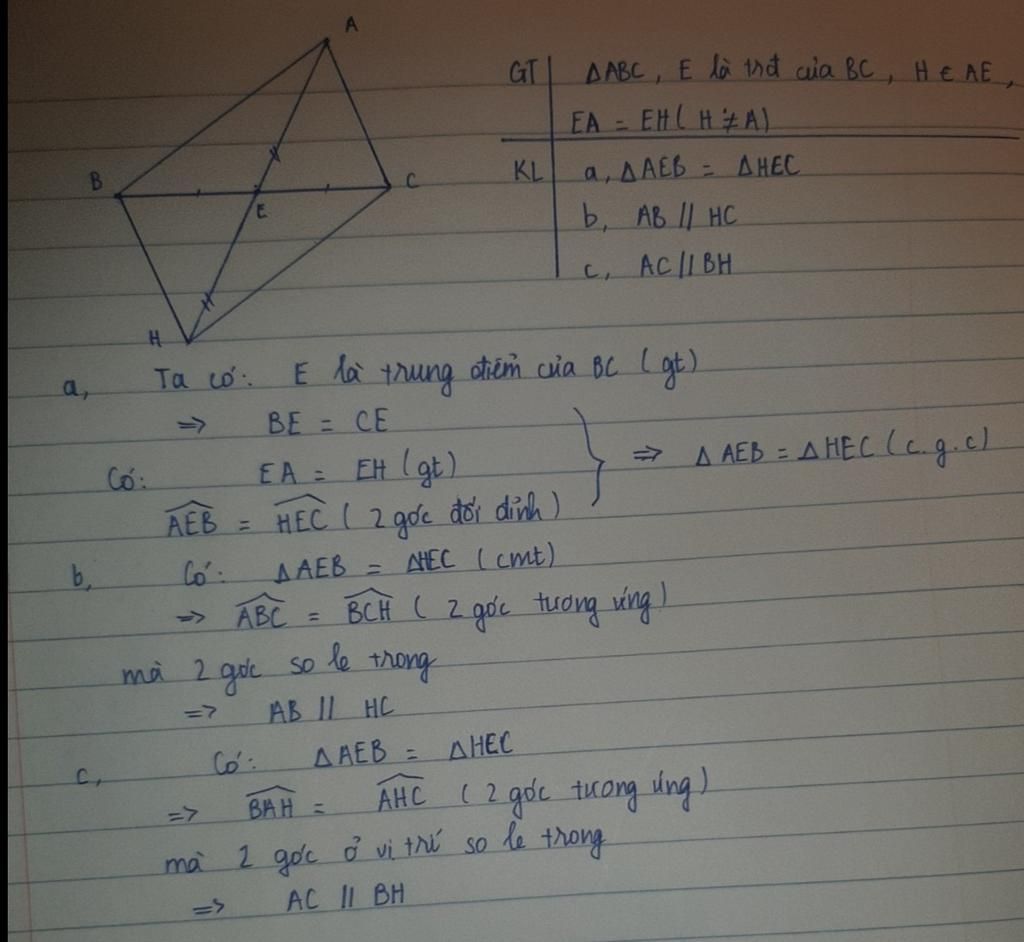 A
B
C
E
H
GT ΔABC, E là trđ của BC, H ∈ AE,
EA = EH ( H ≠ A)
KL a, ΔAEB = ΔHEC
b, AB // HC
c, AC // BH
a, Ta có: E là trung điểm của BC ( gt)
=> BE = CE
Có: EA = EH (gt)
=> Δ AEB = ΔHEC ( c.g.c)
\widehat{AEB} = \widehat{HEC} ( 2 góc đối đỉnh)
b, Có: ΔAEB = ΔHEC (cmt)
=> \widehat{ABC} = \widehat{BCH} ( 2 góc tương ứng)
mà 2 góc so le trong
=> AB // HC
c, Có: ΔAEB = ΔHEC
=> \widehat{BAH} = \widehat{AHC} ( 2 góc tương ứng)
mà 2 góc ở vị trí so le trong
=> AC // BH